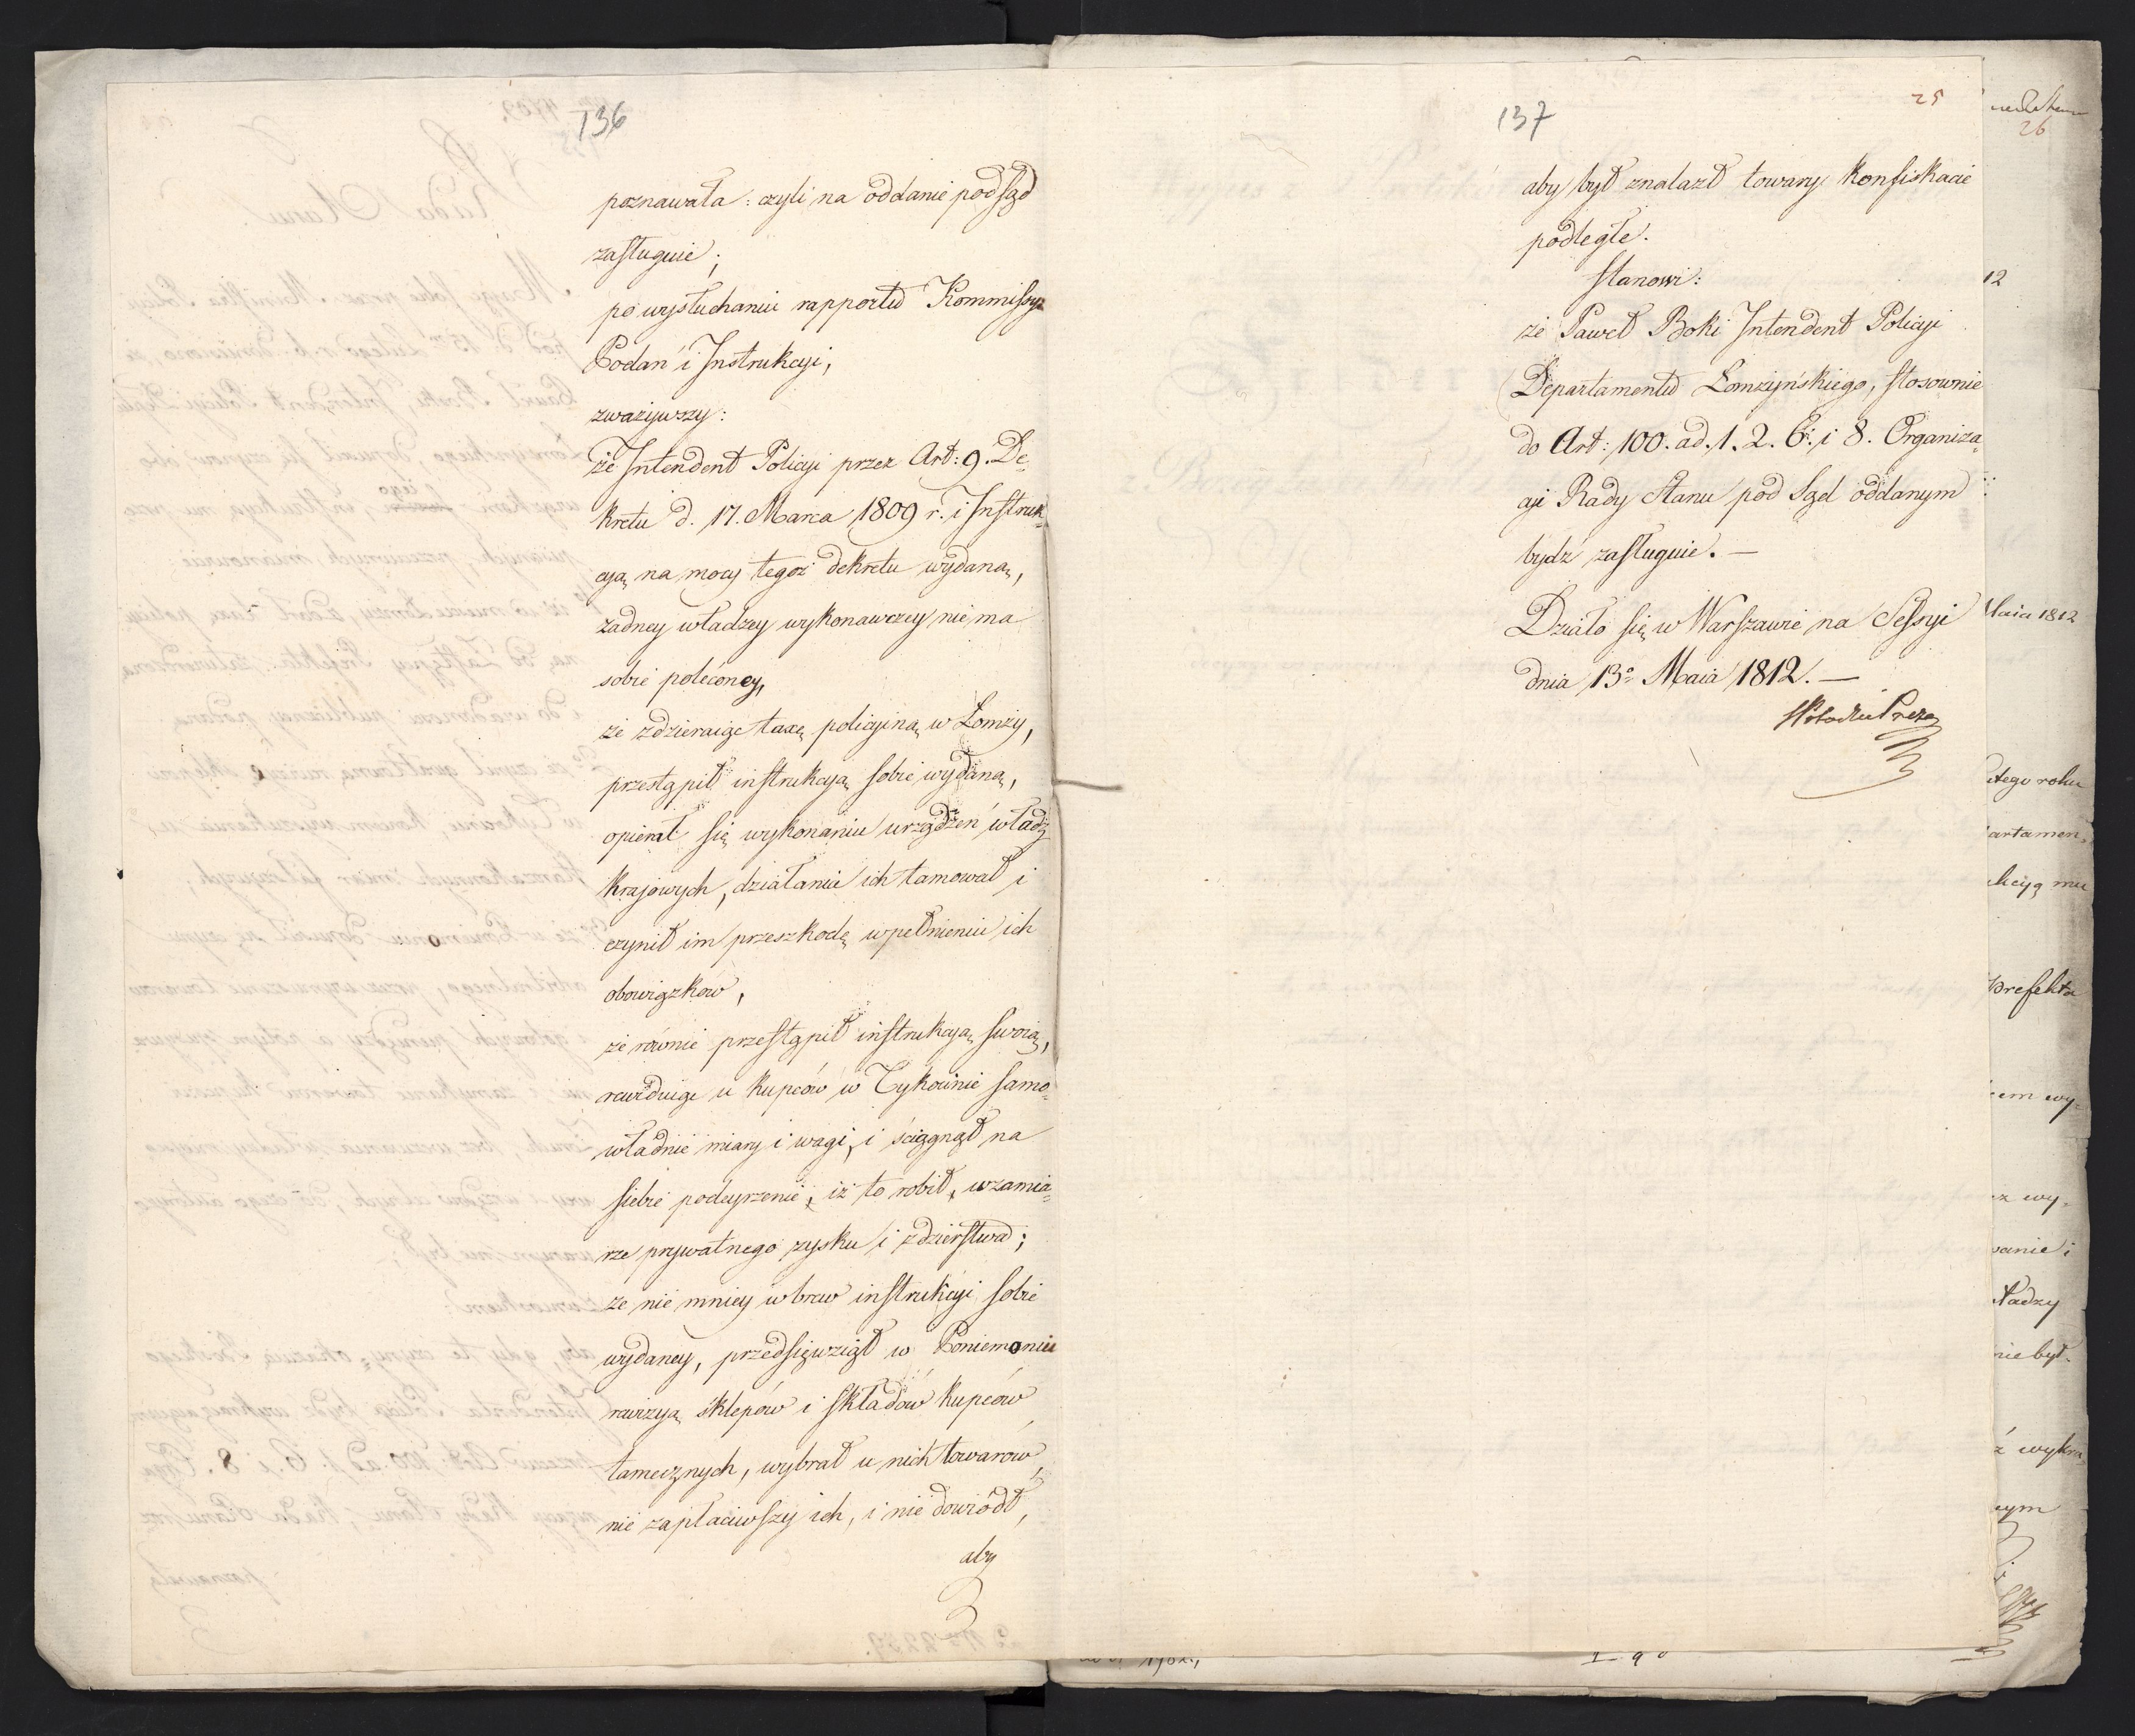 136
poznawała: czyli na oddanie pod sąd
zasługuie;
po wysłuchaniu rapportu Kommissyi
Podań i Instrukcyi,
zważywszy:
że Intendent Policyi przez Art: 9. De-
kretu d. 17. Marca 1809 r. i Instruk-
cyą na mocy tegoż dekretu wydaną,
żadney władzey wykonawczey nie ma
sobie poleconey,
że zdzieraiąc taxę policyiną w Łomży,
przestąpił instrukcyą sobie wydaną,
opierał się wykonaniu urządzeń władz
krajowych, działanie ich tamował i
czynił im przeszkodę w pełnieniu ich
obowiązków,
że równie przestąpił instrukcyą swoią,
rewiduiąc u kupców w Tykocinie samo-
władnie miary i wagi, i ściągnął na
siebie podeyrzenie, iż to robił, w zamia-
rze prywatnego zysku i zdzierstwa;
że nie mniey wbrew instrukcyi sobie
wydaney, przedsięwziął w Poniemoniu
rewizyą sklepów i składów kupców
tamecznych, wybrał u nich towarów
nie zapłaciwszy ich, i nie dowiódł,
aby
137
25
aby był znalazł towary konfiskacie
podległe.
stanowi:
że Paweł Boki Intendent Policyi
Departamentu Łomżyńskiego, stosownie
do Art: 100. ad. 1. 2. 6. i 8. Organiza-
cyi Rady Stanu pod Sąd oddanym
bydź zasługuie. —
Działo się w Warszawie na Sessyi
dnia 13º Maia 1812. —
26
12
Maia 1812
roku
artamen-
kcyą mu
Prefekta
em wy-
z wy-
wanie i
ładzy
nie był.
ź wykra-
cym